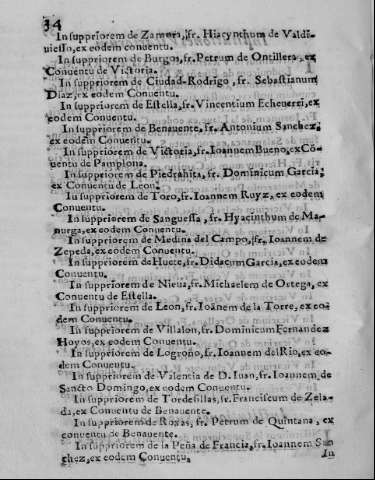 34
In suppriorem de Zamora, fr. Hiacynthum de Valdi-
uiesso, ex eodem conuentu.
In suppriorem de Burgos, fr. Petrum de Ontillera, ex
Conuentu de Victoria.
In suppriorem de Ciudad-Rodrigo, fr. Sebastianum
Diaz, ex eodem Conuentu.
In suppriorem de Estella, fr. Vincentium Echeuerri, ex
eodem Conuentu.
In suppriorem de Benauente, fr. Antonium Sanchez,
ex eodem Conuentu.
In suppriorem de Victoria, fr. Ioannem Bueno, ex Cõ-
uentu de Pamplona.
In suppriorem de Piedrahita, fr. Dominicum Garcia,
ex Conuentu de Leon.
In suppriorem de Toro, fr. Ioannem Ruyz, ex eodem
Conuentu.
In suppriorem de Sanguessa, fr. Hyacinthum de Ma-
purga, ex eodem Conuentu.
In suppriorem de Medina del Campo, fr. Ioannem de
Zepeda, ex eodem Conuentu.
In suppriorem de Huete, fr. Didacum Garcia, ex eodem
Conuentu.
In suppriorem de Nieua, fr. Michaelem de Ortega, ex
Conuentu de Estella.
In suppriorem de Leon, fr. Ioãnem de la Torre, ex eo-
dem Conuentu.
In suppriorem de Villalon, fr. Dominicum Fernandez
Hoyos, ex eodem Conuentu.
In suppriorem de Logroño, fr. Ioannem del Rio, ex eo-
dem Conuentu.
In suppriorem de Valentia de D. Iuan, fr. Ioannem, de
Sancto Domingo, ex eodem Conuentu.
In suppriorem de Tordesillas, fr. Franciscum de Zela-
da, ex Conuentu de Benauente.
In suppriorem de Roxas, fr. Petrum de Quintana, ex
conuentu de Benauente.
In suppriorem de la Peña de Francia, fr. Ioannem San
chez, ex eodem Conuentu,
In